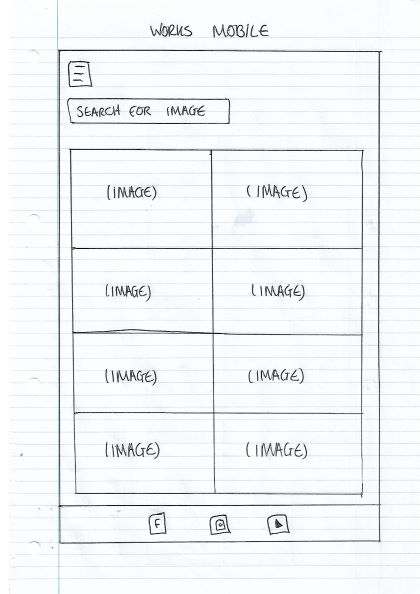 WORKS MOBILE
SEARCH FOR IMAGE
(IMAGE) (IMAGE)
(IMAGE) (IMAGE)
(IMAGE) (IMAGE)
(IMAGE) (IMAGE)
F